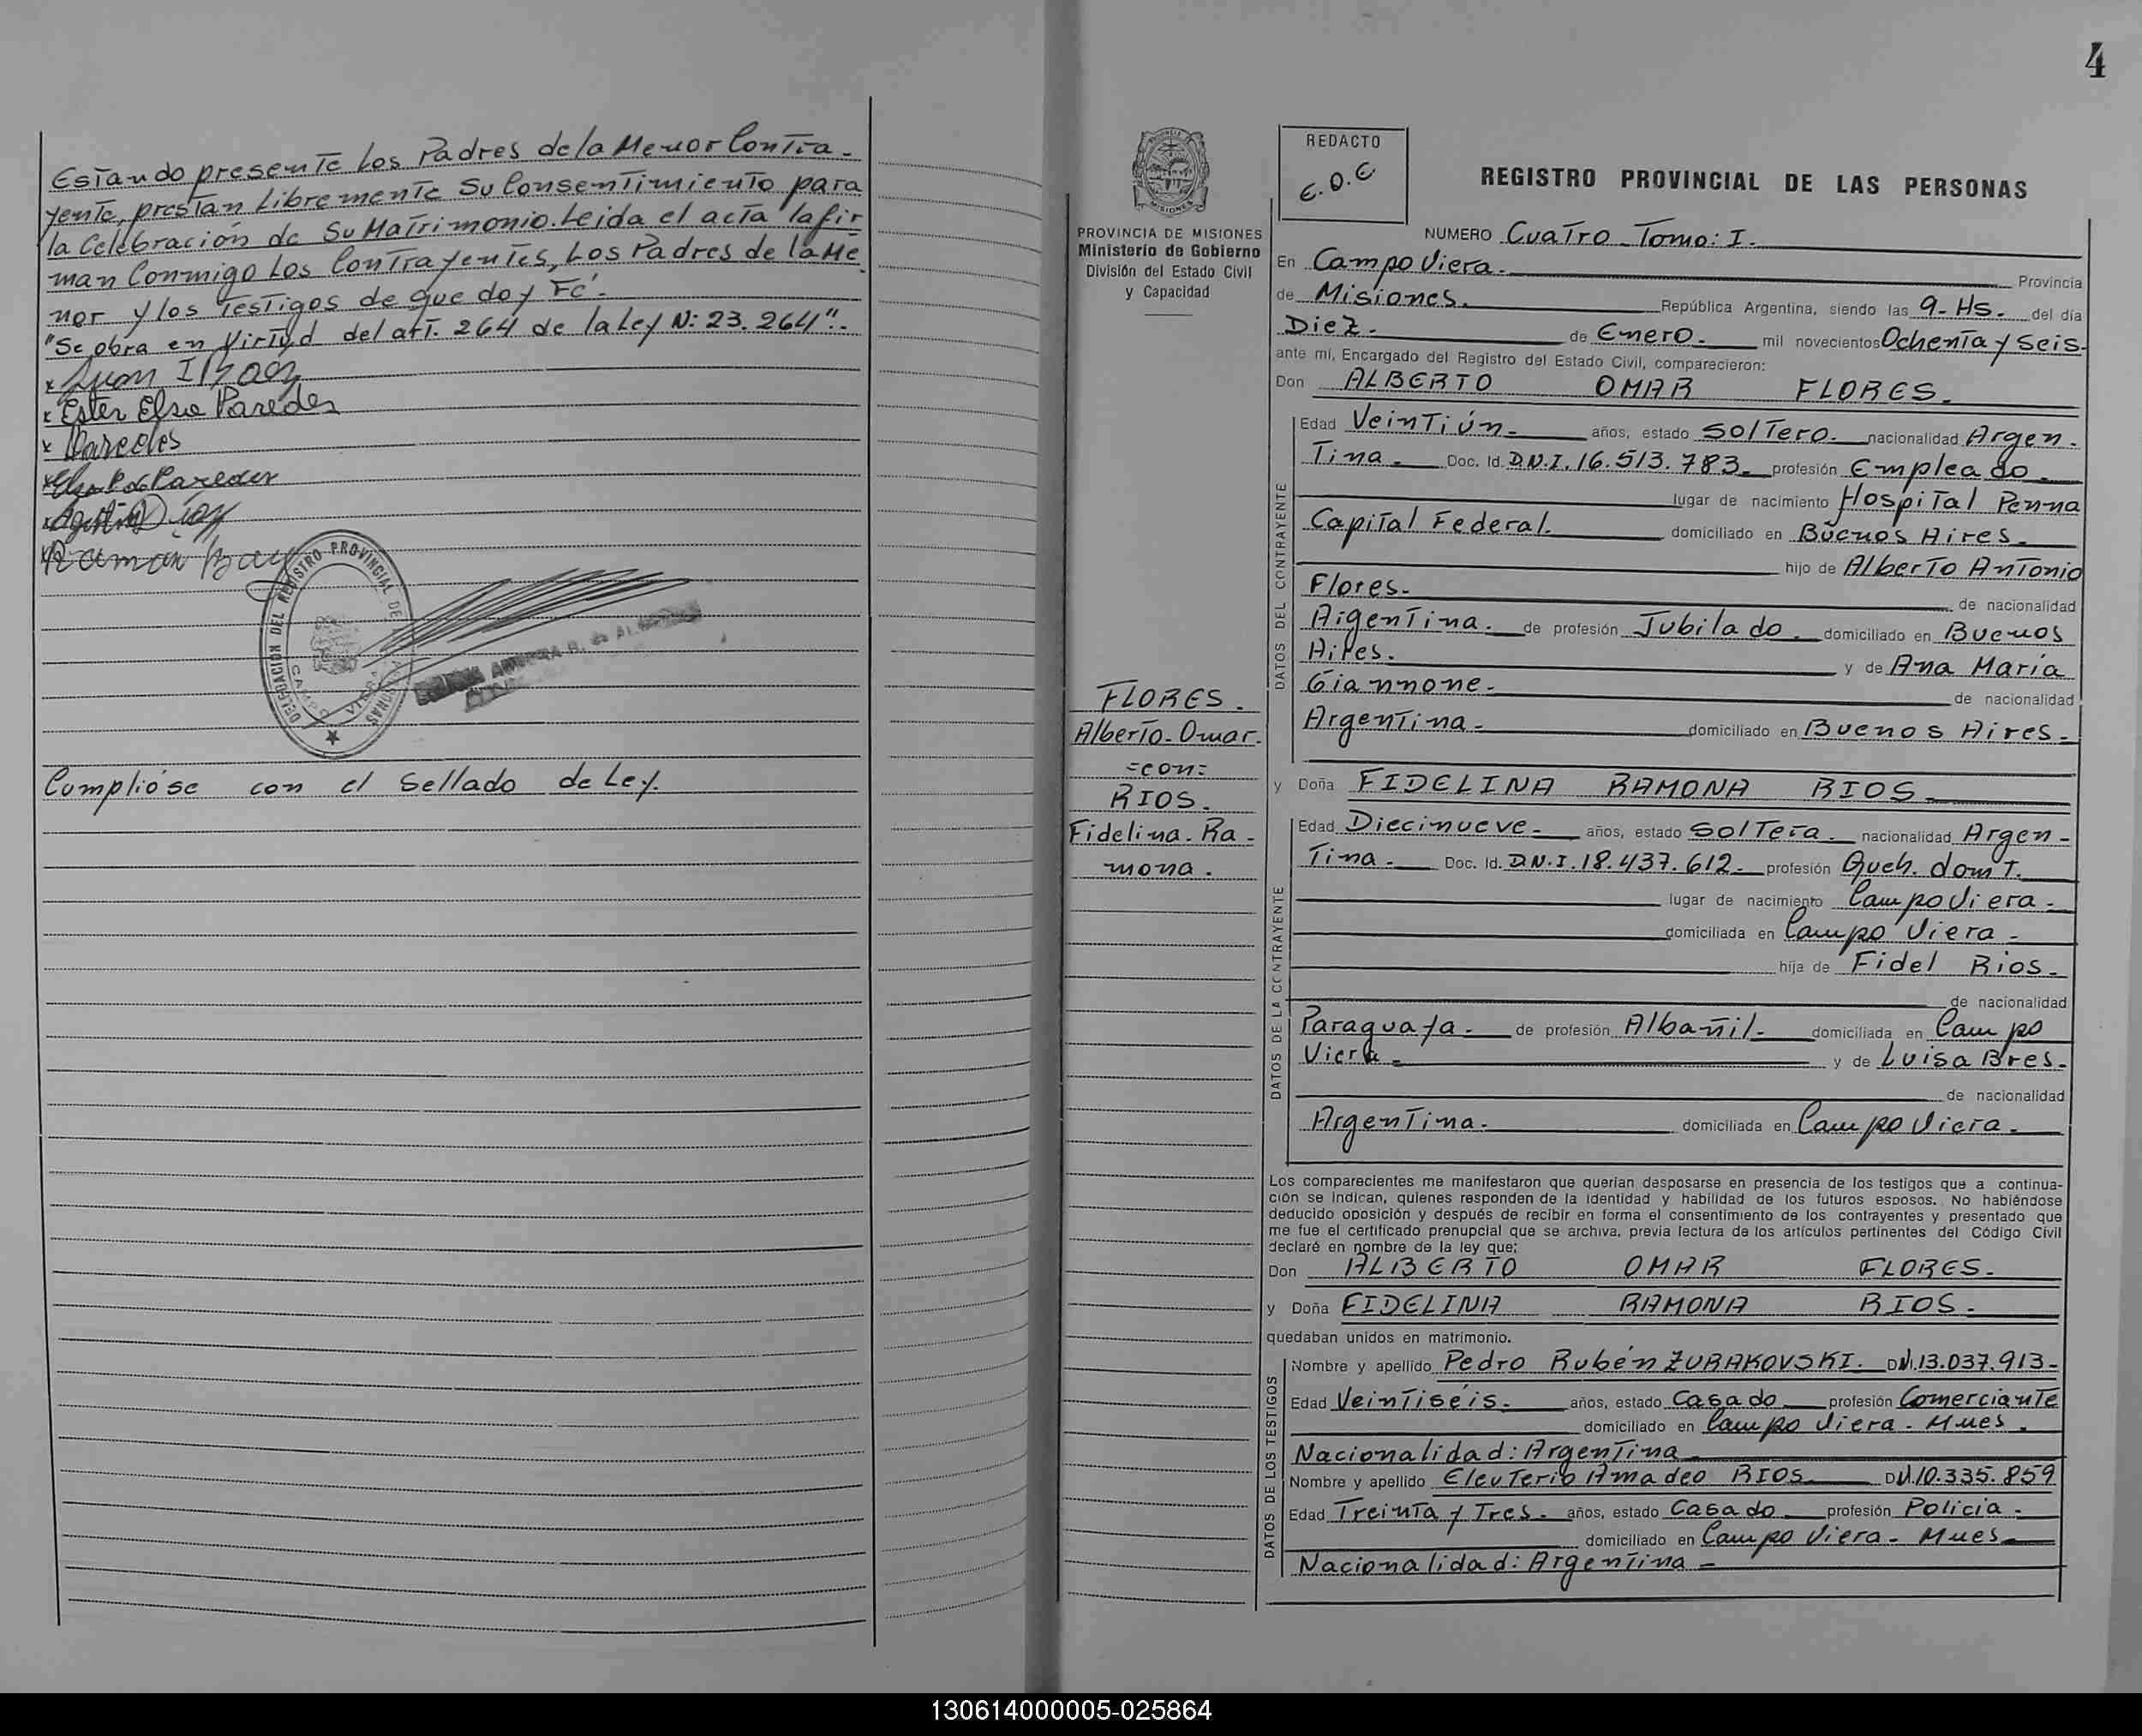 Estando presente Los Padres de la Menor Contra-
yente, prestan Libremente Su Consentimiento para
la Celebración de Su Matrimonio. Leida el acta la fir
man Conmigo Los Contrayentes, Los Padres de la Me
nor y los Testigos de que doy Fé.-
"Se obra en Virtud del art. 264 de la Ley N: 23.264".-
x Juan I
x Ester Elsa Paredes
x Paredes
x Elsa P de Paredes
x Agustin Diaz
x Ramon
DELEGACION DEL REGISTRO PROVINCIAL DE LAS PERSONAS
CAMPO VIERA
Cumplióse con el Sellado de Ley.
4
PROVINCIA DE MISIONES
Ministerio de Gobierno
División del Estado Civil
y Capacidad
FLORES.
Alberto-Omar.
=con=
RIOS.
Fidelina-Ra-
mona.
REDACTO
E.O.E
REGISTRO PROVINCIAL DE LAS PERSONAS
NUMERO Cuatro - Tomo: I.
En Campo Viera. Provincia
de Misiones. República Argentina, siendo las 9-Hs. del día
Diez. de Enero. mil novecientos Ochenta y Seis.
ante mí, Encargado del Registro del Estado Civil, comparecieron:
Don ALBERTO OMAR FLORES.
DATOS DEL CONTRAYENTE
Edad Veintiún. años, estado Soltero. nacionalidad Argen-
Tina. Doc. Id. D.N.I. 16.513.783. profesión Empleado.
lugar de nacimiento Hospital Penna
Capital Federal. domiciliado en Buenos Aires.
hijo de Alberto Antonio
Flores. de nacionalidad
Argentina. de profesión Jubilado. domiciliado en Buenos
Aires. y de Ana María
Giannone. de nacionalidad
Argentina. domiciliado en Buenos Aires.
y Doña FIDELINA RAMONA RIOS.
DATOS DE LA CONTRAYENTE
Edad Diecinueve. años, estado Soltera. nacionalidad Argen-
Tina. Doc. Id. D.N.I. 18.437.612. profesión Queh. domt.
lugar de nacimiento Campo Viera.
domiciliada en Campo Viera.
hija de Fidel Rios.
de nacionalidad
Paraguaya. de profesión Albañil. domiciliada en Campo
Viera. y de Luisa Bres.
de nacionalidad
Argentina. domiciliada en Campo Viera.
Los comparecientes me manifestaron que querían desposarse en presencia de los testigos que a continua-
ción se indican, quienes responden de la identidad y habilidad de los futuros esposos. No habiéndose
deducido oposición y después de recibir en forma el consentimiento de los contrayentes y presentado que
me fue el certificado prenupcial que se archiva, previa lectura de los artículos pertinentes del Código Civil
declaré en nombre de la ley que:
Don ALBERTO OMAR FLORES.
y Doña FIDELINA RAMONA RIOS.
quedaban unidos en matrimonio.
DATOS DE LOS TESTIGOS
Nombre y apellido Pedro Rubén ZURAKOVSKI. DNI.13.037.913-
Edad Veintiséis. años, estado Casado profesión Comerciante
domiciliado en Campo Viera - Mnes.
Nacionalidad: Argentina
Nombre y apellido Eleuterio Amadeo RIOS DNI.10.335.859
Edad Treinta y Tres. años, estado Casado profesión Policia.
domiciliado en Campo Viera - Mnes
Nacionalidad: Argentina -
130614000005-025864